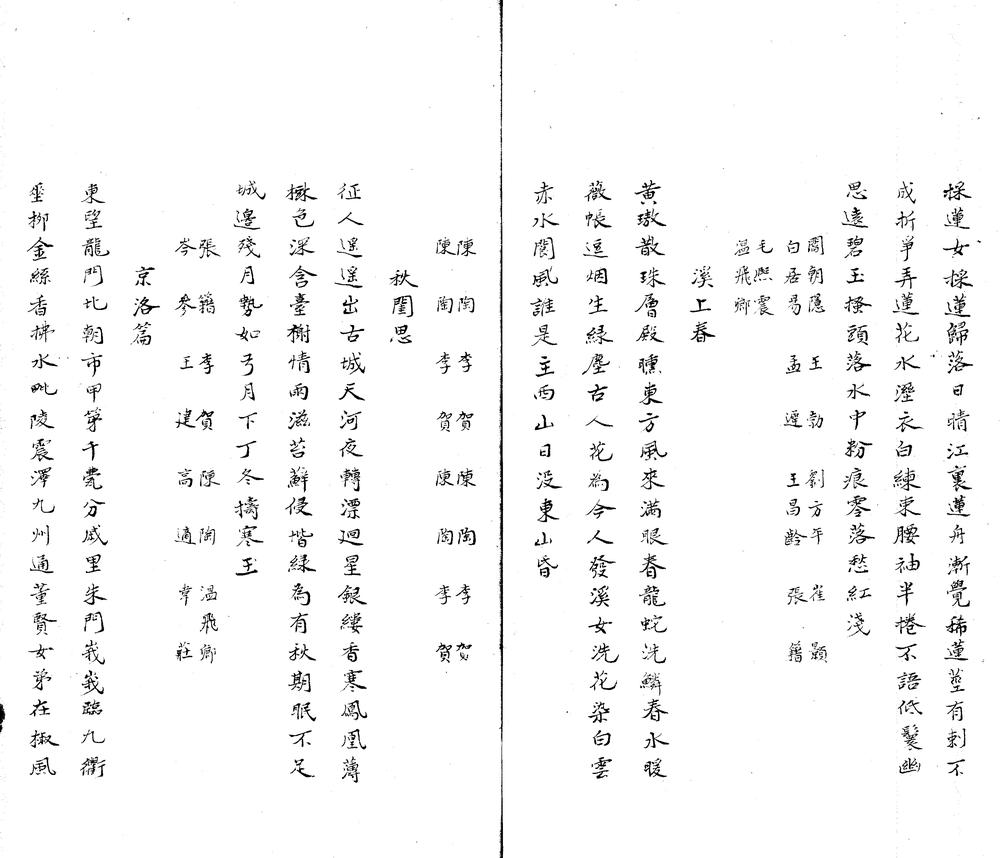 採蓮女採蓮歸落日晴江裏蓮舟漸覺稀蓮莖有刺不
成折爭弄蓮花水溼衣白練束腰袖半捲不語低鬟幽
思遠碧玉搔頭落水中粉痕零落愁紅淺
閻朝隱 王勃 劉方平 崔顥
白居易 孟遲 王昌齡 張籍
毛熙震
溫飛卿
溪上春
黃璈散珠層殿曛東方風來滿眼春龍蛇洗鱗春水暖
薇帳逗烟生綠塵古人花為今人發溪女洗花染白雲
赤水閬風誰是主西山日没東山昏
陳陶 李賀 陳陶 李賀
陳陶 李賀 陳陶 李賀
秋閨思
征人遥遥出古城天河夜轉漂迴星銀縷香寒鳳凰薄
楸色深含臺榭情雨滋苔蘚侵堦綠為有秋期眠不足
城邊殘月勢如弓月下丁冬擣寒玉
張籍 李賀 陳陶 温飛卿
岑參 王建 高適 韋莊
京洛篇
東望龍門北朝市甲第千甍分戚里朱門峩峩臨九衢
垂柳金絲香拂水毗陵震澤九州通董賢女弟在椒風